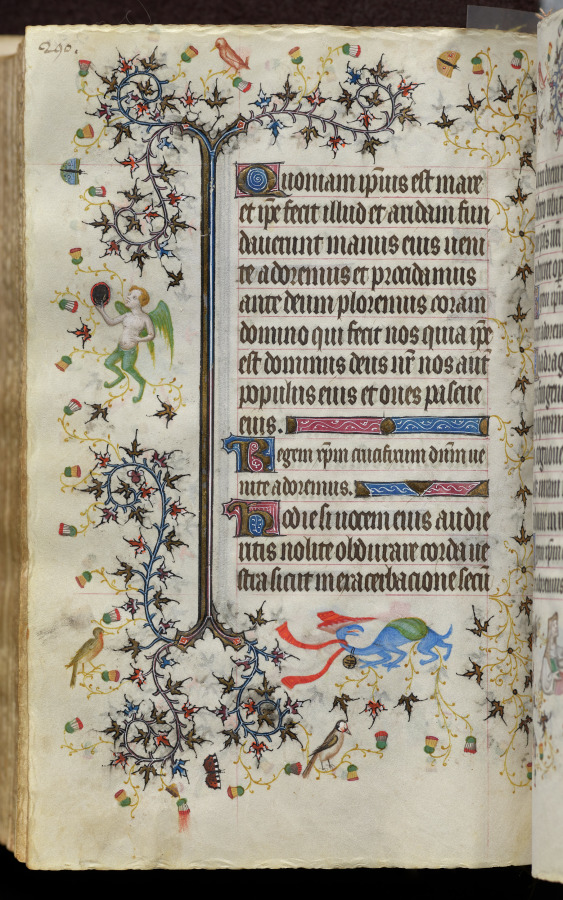 290.
Quoniam ip̄ius est mare
et ip̄e fecit illud et aridam fun
dauerunt manus eius ueni
te adoremus et procidamus
ante deum ploremus coram
domino qui fecit nos quia ip̄e
est dominus deus nr̄ nos aut̄
populus eius et oues pascue
eius.
Regem xp̄m crucifixum dn̄m ue
nite adoremus.
Hodie si uocem eius audie
ritis nolite obdurare corda ue
stra sicut in exacerbacione secū